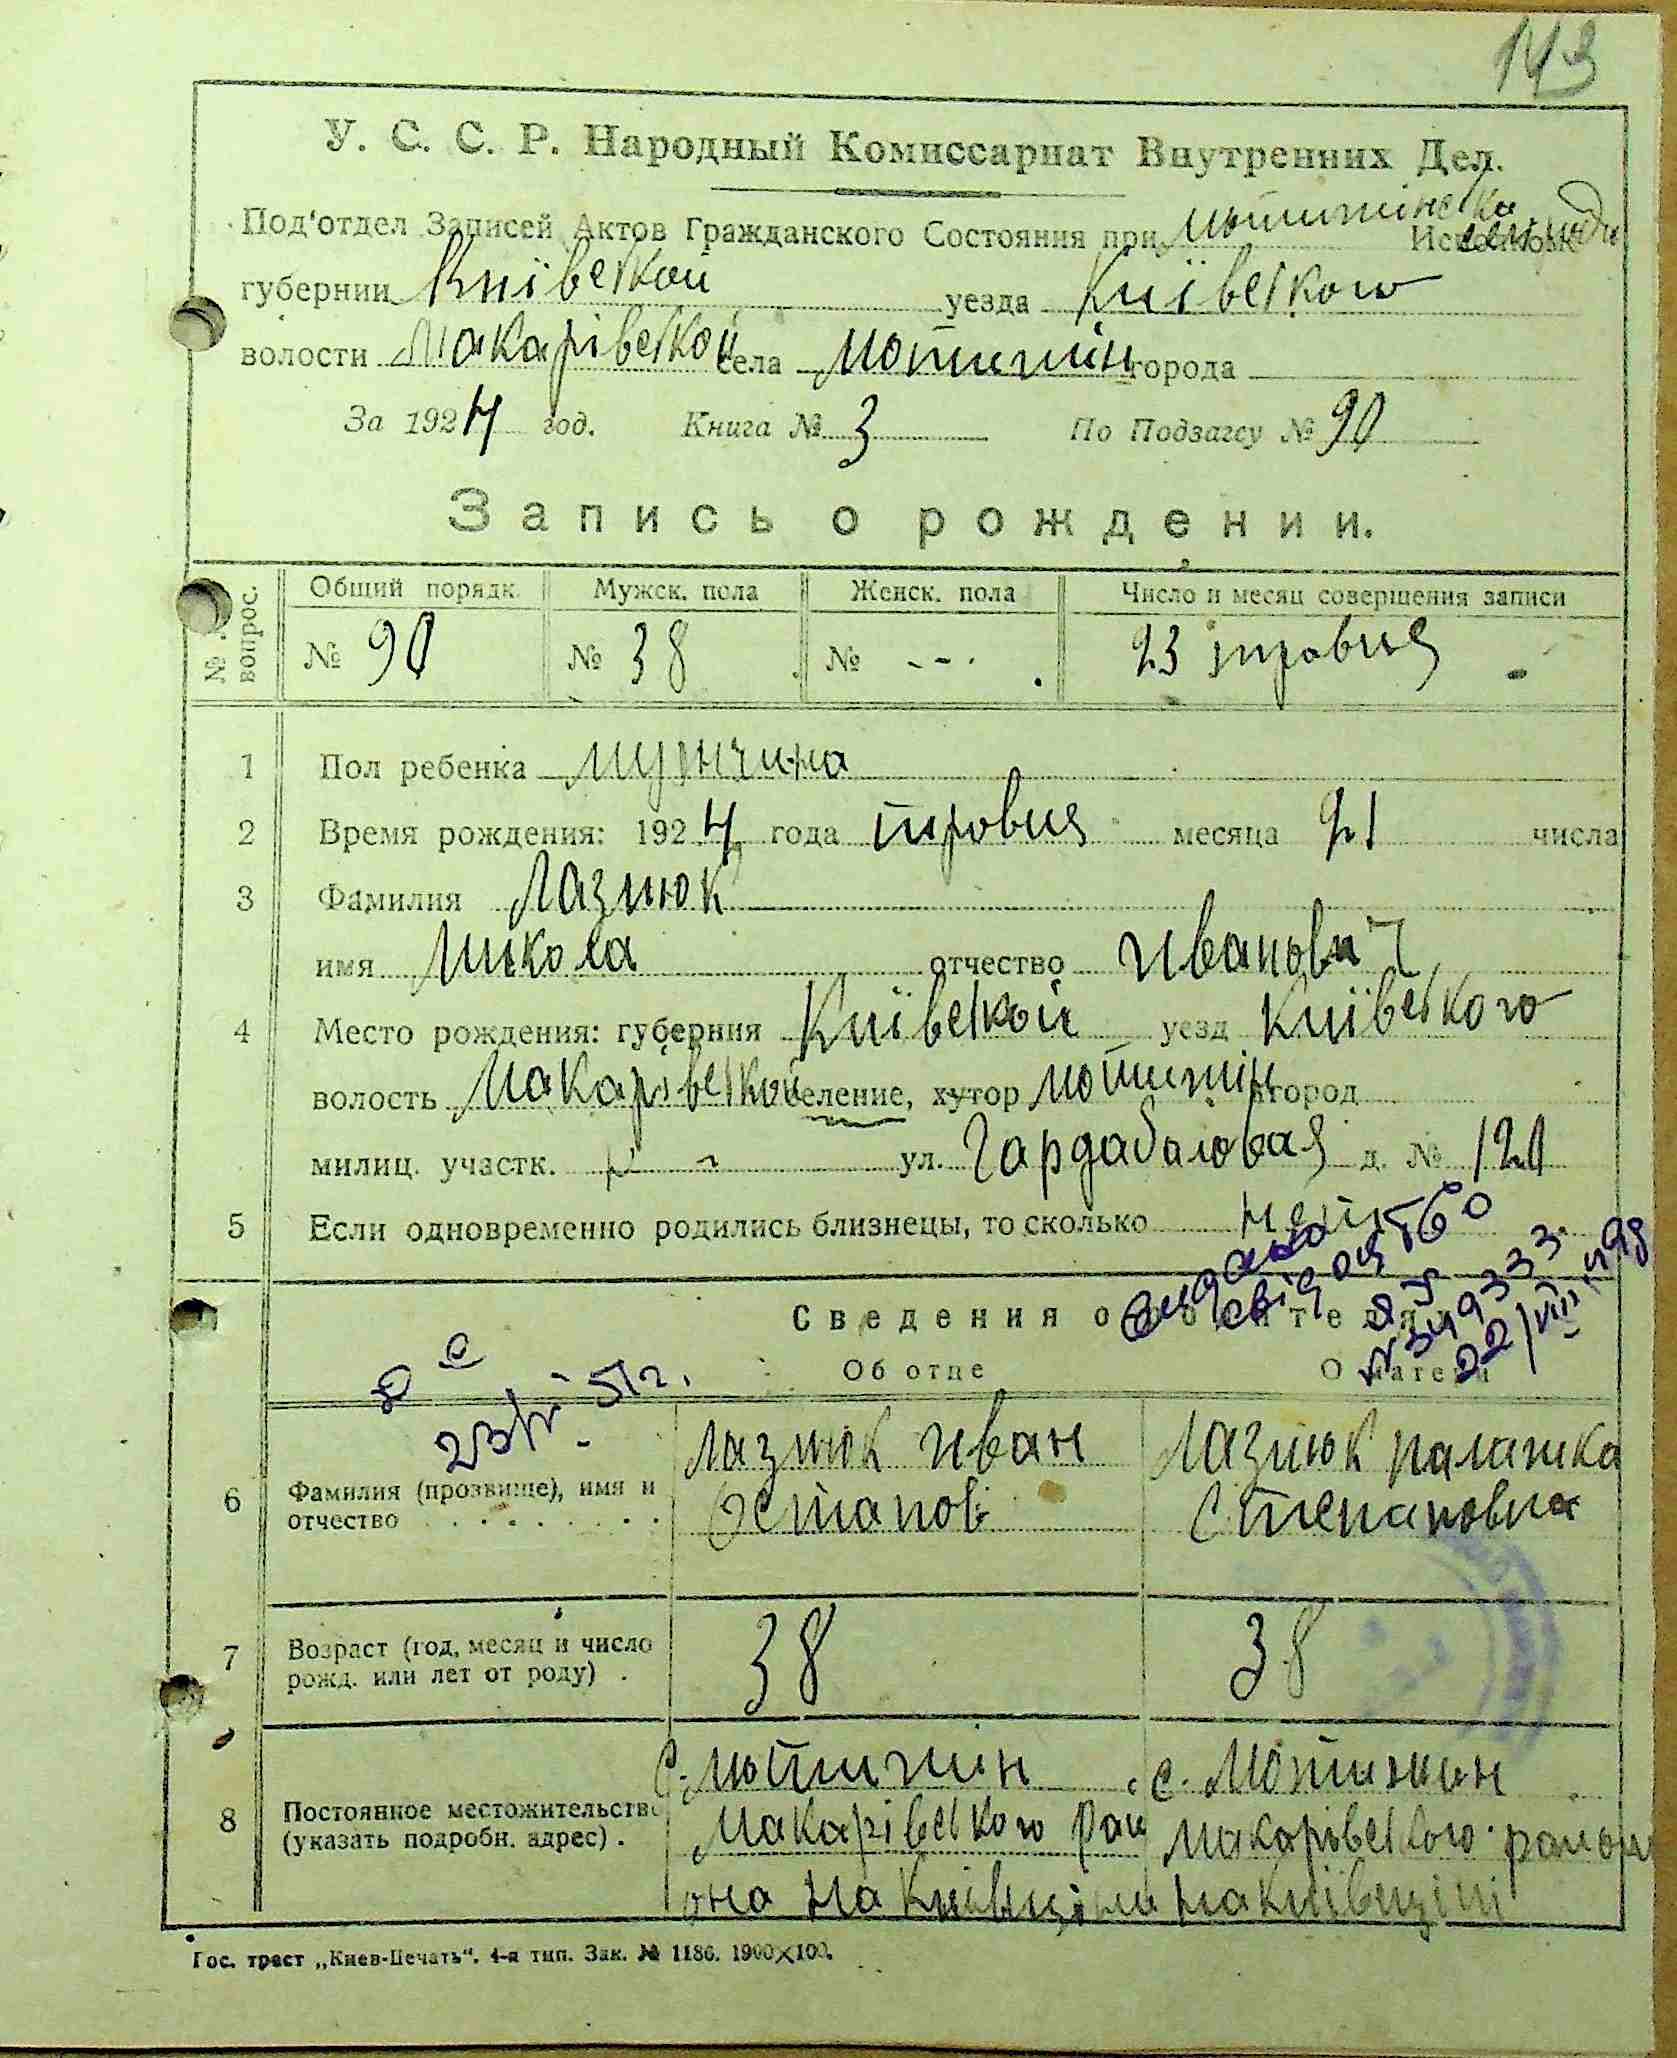 143
У. С. С. Р. Народный Комиссариат Внутренних Дел.
Под'отдел Записей Актов Гражданского Состояния при Мотижинська
губернии Київської уезда Київського
волости Макарівської села Мотижин города
За 1924 год. Книга № 3 По Подзагсу № 90
Запись о рождении.
№ вопрос. Общий порядк. Мужск. пола Женск. пола Число и месяц совершения записи
№ 90 № 38 № --- 23 травня
1 Пол ребенка мужчина
2 Время рождения: 1924 года травня месяца 21 числа
3 Фамилия Лазнюк
имя Микола отчество Иванович
4 Место рождения: губерния Київської уезд Київського
волость Макарівської селение, хутор Мотижин город
милиц. участк. ул. д. № 120
5 Если одновременно родились близнецы, то сколько
видано свідоцтво
№ 349333
22/VIII 49
Сведения о родителях
Об отце О матери
23/IV-51г.
6 Фамилия (прозвище), имя и отчество Лазнюк Иван Остапов Лазнюк Палажка Степановна
7 Возраст (год, месяц и число рожд. или лет от роду) 38 38
8 Постоянное местожительство (указать подробн. адрес) с. Мотижин Макарівського района на Київщині с. Мотижин Макарівського району на Київщині
Гос. трест „Киев-Печать“. 4-я тип. Зак. № 1186. 1900×100.